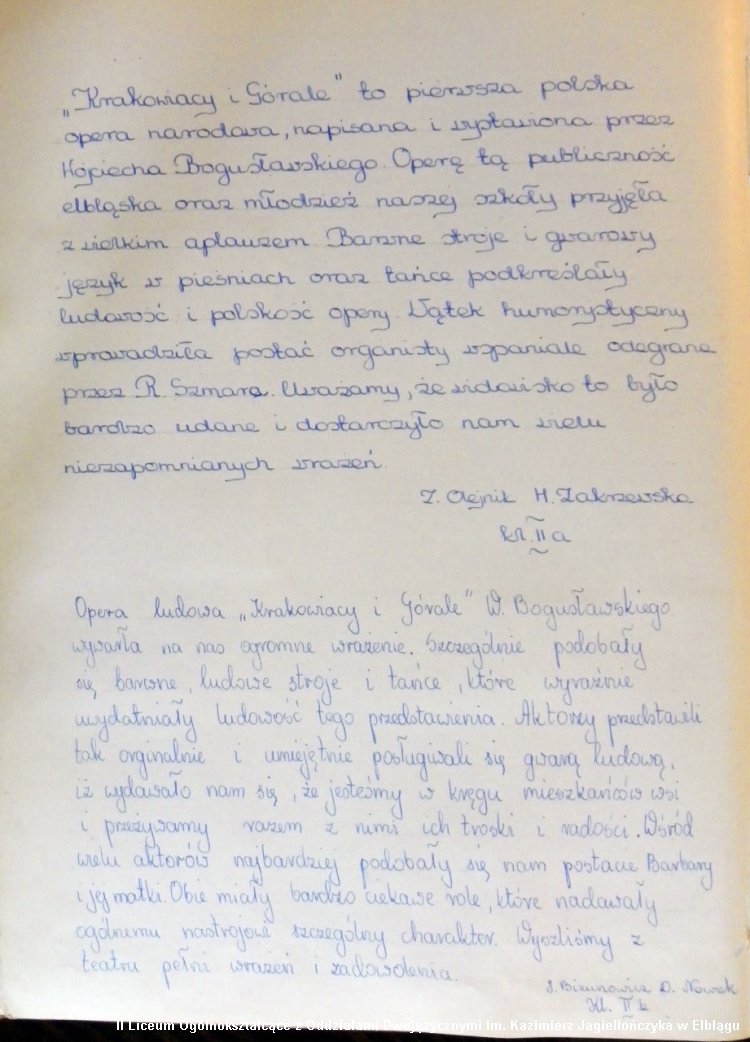 „Krakowiacy i Górale" to pierwsza polska
opera narodowa, napisana i wystawiona przez
Wojciecha Bogusławskiego. Operę tą publiczność
elbląska oraz młodzież naszej szkoły przyjęła
z wielkim aplauzem. Barwne stroje i gwarowy
język w pieśniach oraz tańce podkreślały
ludowość i polskość opery. Wątek humorystyczny
wprowadziła postać organisty wspaniale odegrana
przez R. Szmara. Uważamy, że widowisko to było
bardzo udane i dostarczyło nam wielu
niezapomnianych wrażeń.
Z. Olejnik H. Zakrzewska
kl. II a
Opera ludowa „Krakowiacy i Górale" W. Bogusławskiego
wywarła na nas ogromne wrażenie. Szczególnie podobały
się barwne, ludowe stroje i tańce, które wyraźnie
uwydatniały ludowość tego przedstawienia. Aktorzy przedstawili
tak orginalnie i umiejętnie posługiwali się gwarą ludową,
iż wydawało nam się, że jesteśmy w kręgu mieszkańców wsi
i przeżywamy razem z nimi ich troski i radości. Wśród
wielu aktorów najbardziej podobały się nam postacie Barbary
i jej matki. Obie miały bardzo ciekawe role, które nadawały
ogólnemu nastrojowi szczególny charakter. Wyszliśmy z
teatru pełni wrażeń i zadowolenia.
D. Nowak
Kl. II b
II Liceum Ogólnokształcące z Oddziałami Dwujęzycznymi im. Kazimierz Jagiellończyka w Elblągu